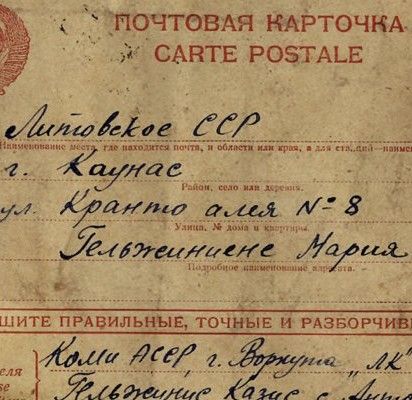 ПОЧТОВАЯ КАРТОЧКА
CARTE POSTALE
Литовское ССР
Наименование места, где находится почта, и области или края, а для
г. Каунас
Район, село или деревня.
ул. Кранто алея № 8
Улица, № дома и квартиры.
Гельжиниене Мария
Подробное наименование адресата.
ШИТЕ ПРАВИЛЬНЫЕ, ТОЧНЫЕ И РАЗБОРЧИВ
Коми АССР, г. Воркута "ЛК"
еля
se
Гельжинис Казис с